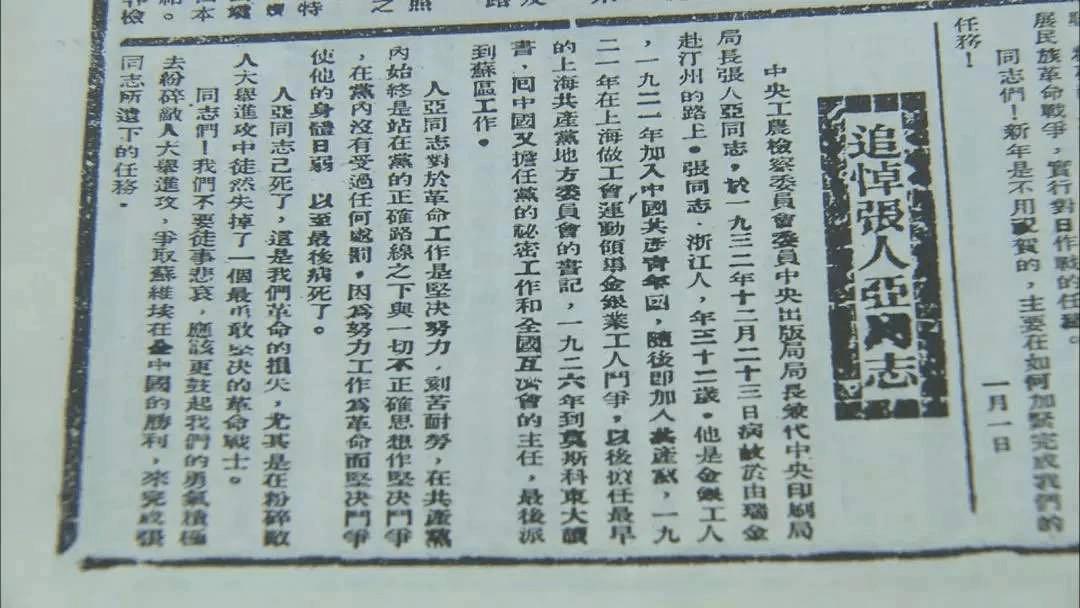 展民族革命戰爭,實行對日作戰的任務。
同志們!新年是不用祝賀的,主要在如何加緊完成我們的
任務!
一月一日
追悼張人亞同志
中央工農檢察委員會委員中央出版局局長兼代中央印刷局
局長張人亞同志,於一九三二年十二月二十三日病故於由瑞金
赴汀州的路上。張同志·浙江人,年三十二歲。他是金銀工人
,一九二一年加入中國共產青年團,隨後即加入共產黨,一九
二一年在上海做工會運動領導金銀業工人鬥爭,以後擔任最早
的上海共產黨地方委員會的書記,一九二六年到莫斯科東大讀
書,囘中國又擔任黨的祕密工作和全國互濟會的主任,最後派
到蘇區工作。
人亞同志對於革命工作是堅決努力,刻苦耐勞,在共產黨
內始終是站在黨的正確路線之下與一切不正確思想作堅決鬥爭
,在黨內沒有受過任何處罰,因爲努力工作爲革命而堅決鬥爭
使他的身體日弱 以至最後病死了。
人亞同志已死了,這是我們革命的損失,尤其是在粉碎敵
人大舉進攻中徒然失掉了一個最勇敢堅决的革命戰士。
同志們!我們不要徒事悲哀,應該更鼓起我們的勇氣積極
去粉碎敵人大舉進攻,爭取蘇維埃在全中國的勝利,來完成張
同志所遺下的任務.